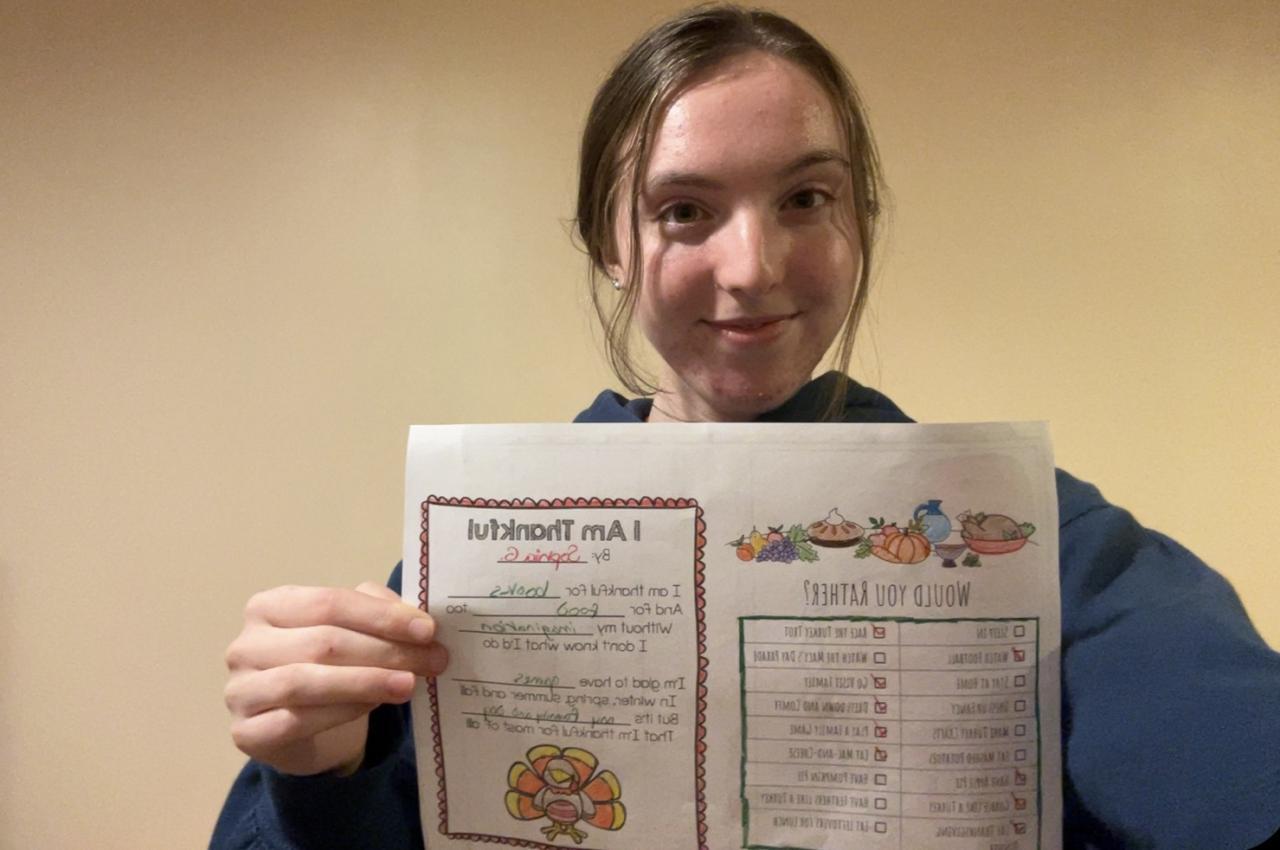 WOULD YOU RATHER?
SLEEP IN RACE THE TURKEY TROT
WATCH FOOTBALL WATCH THE MACY'S DAY PARADE
STAY AT HOME GO VISIT FAMILY
DRESS UP FANCY DRESS DOWN AND COMFY
MAKE TURKEY CRAFTS PLAY A FAMILY GAME
EAT MASHED POTATOES EAT MAC-AND-CHEESE
HAVE APPLE PIE HAVE PUMPKIN PIE
GOBBLE LIKE A TURKEY HAVE FEATHERS LIKE A TURKEY
EAT THANKSGIVING EAT LEFTOVERS FOR LUNCH
I Am Thankful
By: Sophia G.
I am thankful for books
And for food too
Without my imagination
I don't know what I'd do
I'm glad to have games
In winter, spring, summer and fall
But it's my family and dog
That I'm thankful for most of all